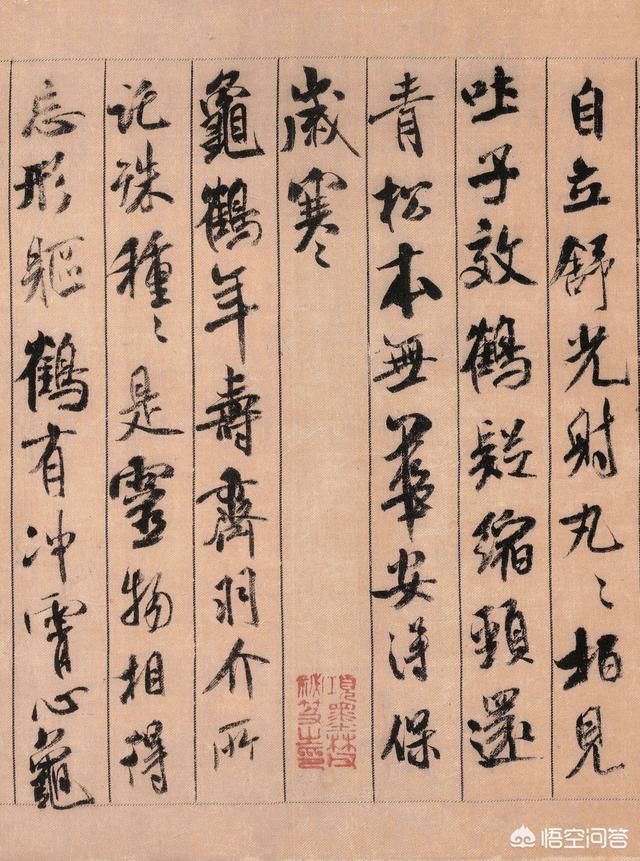 自立舒光射丸〻柏見
吐子效鶴疑縮頸還
青松本無華安得保
歲寒〻
龜鶴年壽齊羽介所
託殊種〻是靈物相得
忘形軀鶴有冲霄心龜
項墨林父
秘笈之印
悟空问答